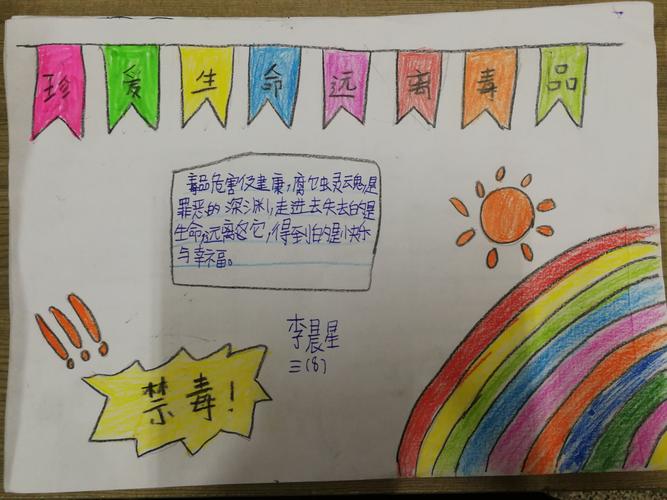 珍爱生命远离毒品
毒品危害健康,腐蚀灵魂,是
罪恶的深渊,走进去失去的是
生命,远离它,得到的是快乐
与幸福。
李晨星
三(8)
禁毒!